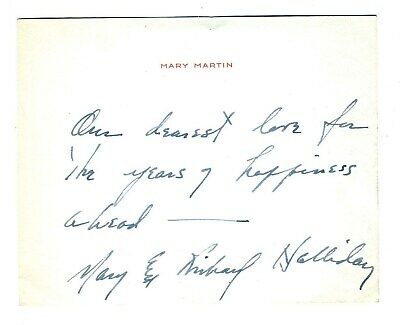 MARY MARTIN
Our dearest love for
the years of happiness
ahead —
Mary & Richard Halliday